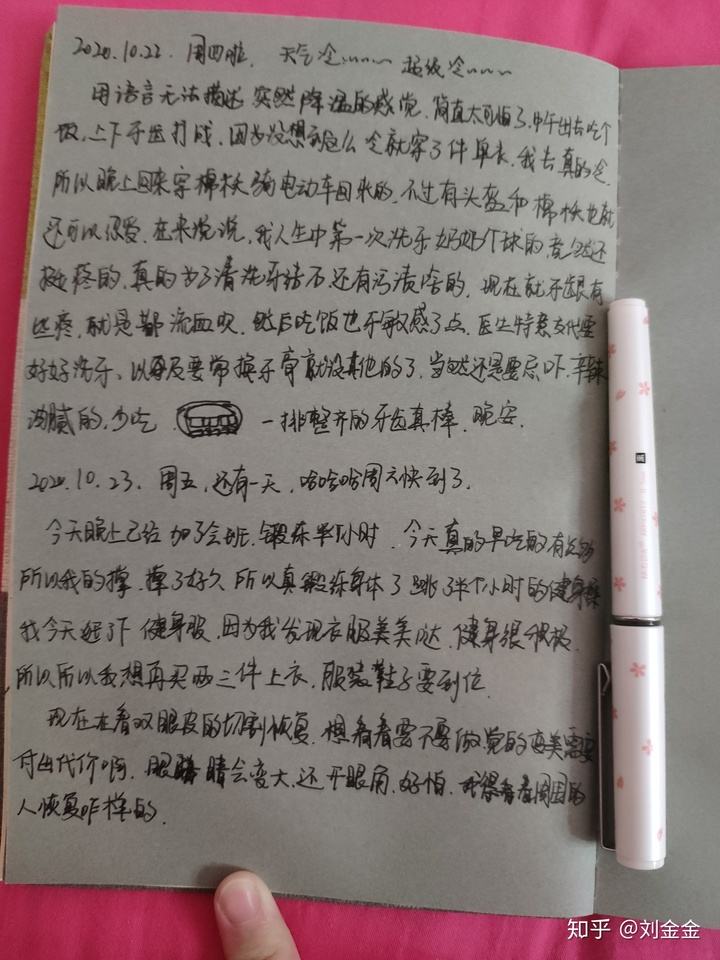 2020.10.22. 周四啦. 天气冷~~~~ 超级冷~~~~
用语言无法描述 突然降温的感觉, 简直太可怕了, 中午出去吃个
饭, 上下牙齿打战, 因为没想到这么冷就穿了件单衣, 我去真的冷.
所以晚上回来穿棉袄骑电动车回来的, 不过有头盔和棉袄也就
还可以忍受. 在来说说, 我人生中第一次洗牙 好好个球的, 竟然还
挺疼的, 真的为了清洗牙结石还有污渍啥的, 现在就牙龈有
些疼, 就是都流血呗, 然后吃饭也牙敏感了点. 医生特意交代要
好好洗牙、以及要常换牙膏就没其他的了. 当然还是要忌口下. 辛辣
油腻的, 少吃. 一排整齐的牙齿真棒. 晚安.
2020.10.23. 周五, 还有一天, 哈哈哈周六快到了.
今天晚上已经加了会班, 锻练半小时. 今天真的早吃的有
所以我的撑. 撑了好久 所以真锻练身体了 跳了半个小时的健身操
我今天 了下 健身服, 因为我发现衣服美美哒, 健身很积极.
所以所以我想再买两三件上衣, 服装鞋子要到位.
现在在看双眼皮的切割恢复, 想看看要不要做, 觉的变美需要
付出代价啊. 眼睛会变大, 还开眼角, 好怕. 我得看看周围的
人恢复咋样的.
知乎 @刘金金